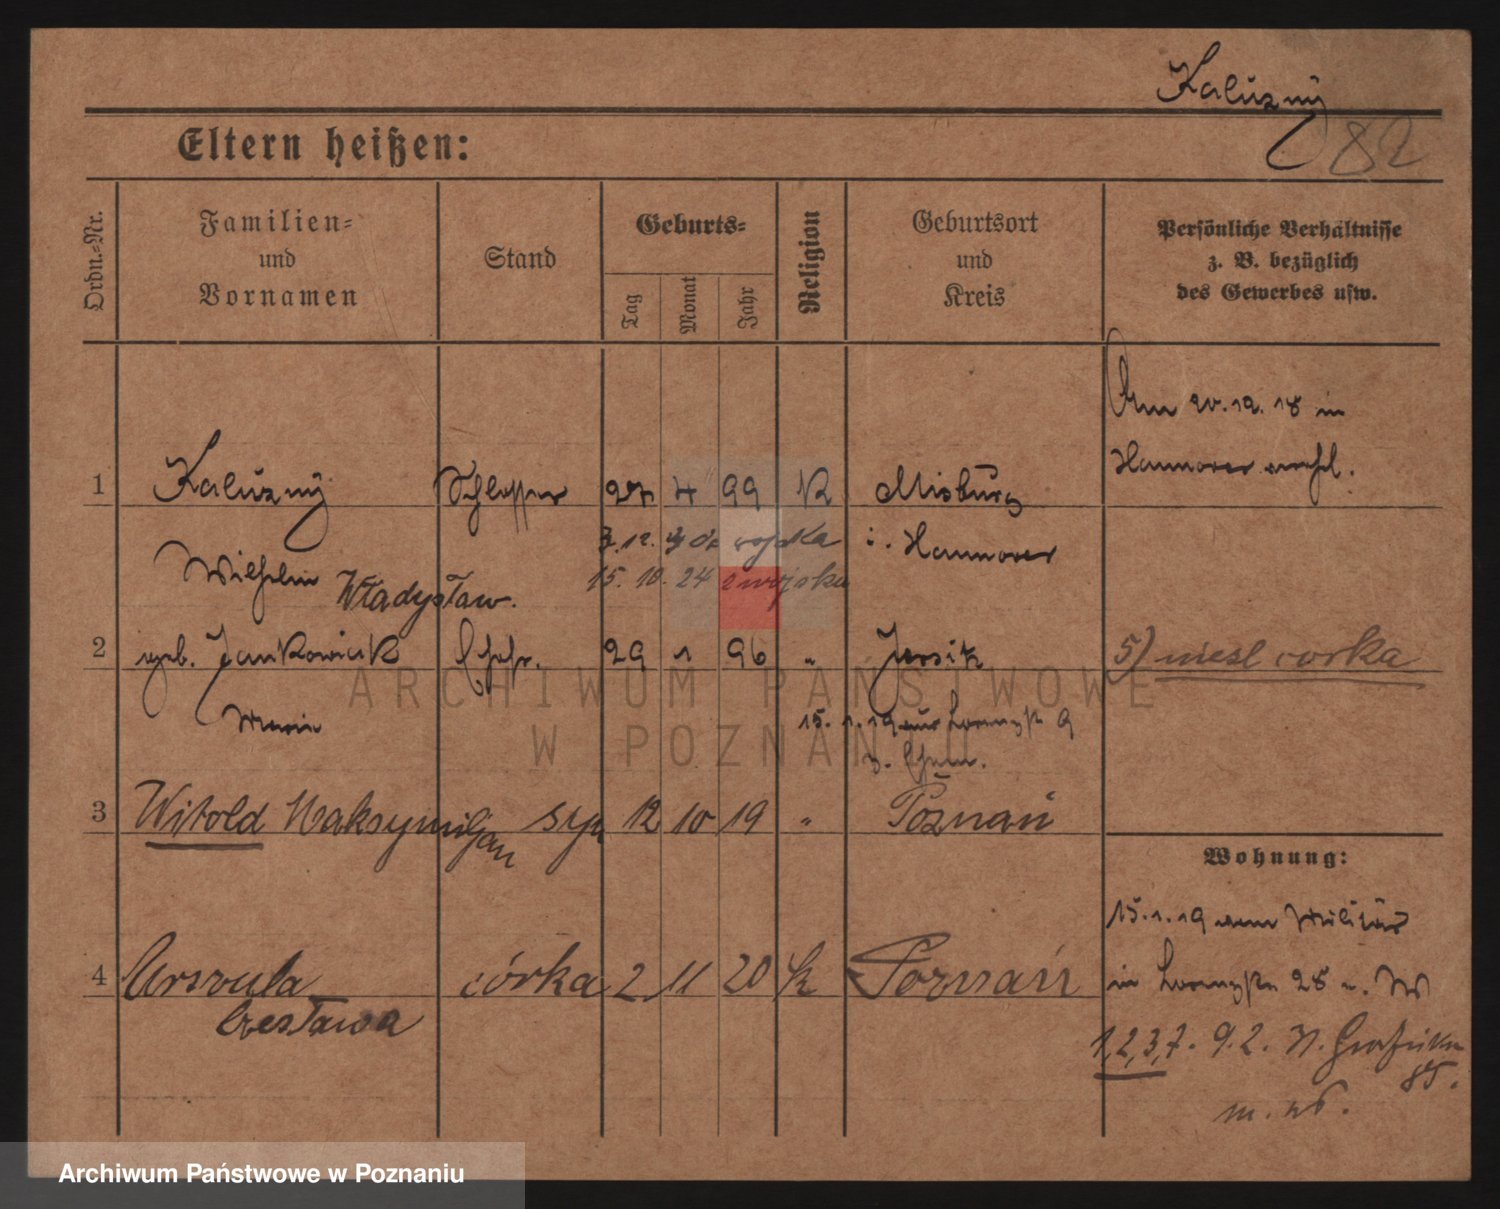 Kaluzny
82
Eltern heißen:
Ordn.-Nr.
Familien- und Vornamen
Stand
Geburts-
Tag
Monat
Jahr
Religion
Geburtsort und Kreis
Persönliche Verhältnisse
z. B. bezüglich
des Gewerbes usw.
Am 20.12.18 in
Hannover verehl.
1 Kaluzny Schlosser 27 4 99 K Misburg
3.12. do wojska i. Hannover
Wilhelm Władysław. 15. 10. 24 z wojska
2 geb. Jankowiak Ehefr. 29 1 96 " Jersitz
5) niesl corka
Maria 15. 1. 19 aus 9
z. Ehem.
3 Witold Maksymiljan syn 12 10 19 " Poznań
Wohnung:
15.1.19 vom Militär
4 Urszula córka 2 11 20 k Poznań
in 28
Czesława
1,2,3,7. 9.2.
m. ws.
ARCHIWUM PAŃSTWOWE
W POZNANIU
Archiwum Państwowe w Poznaniu